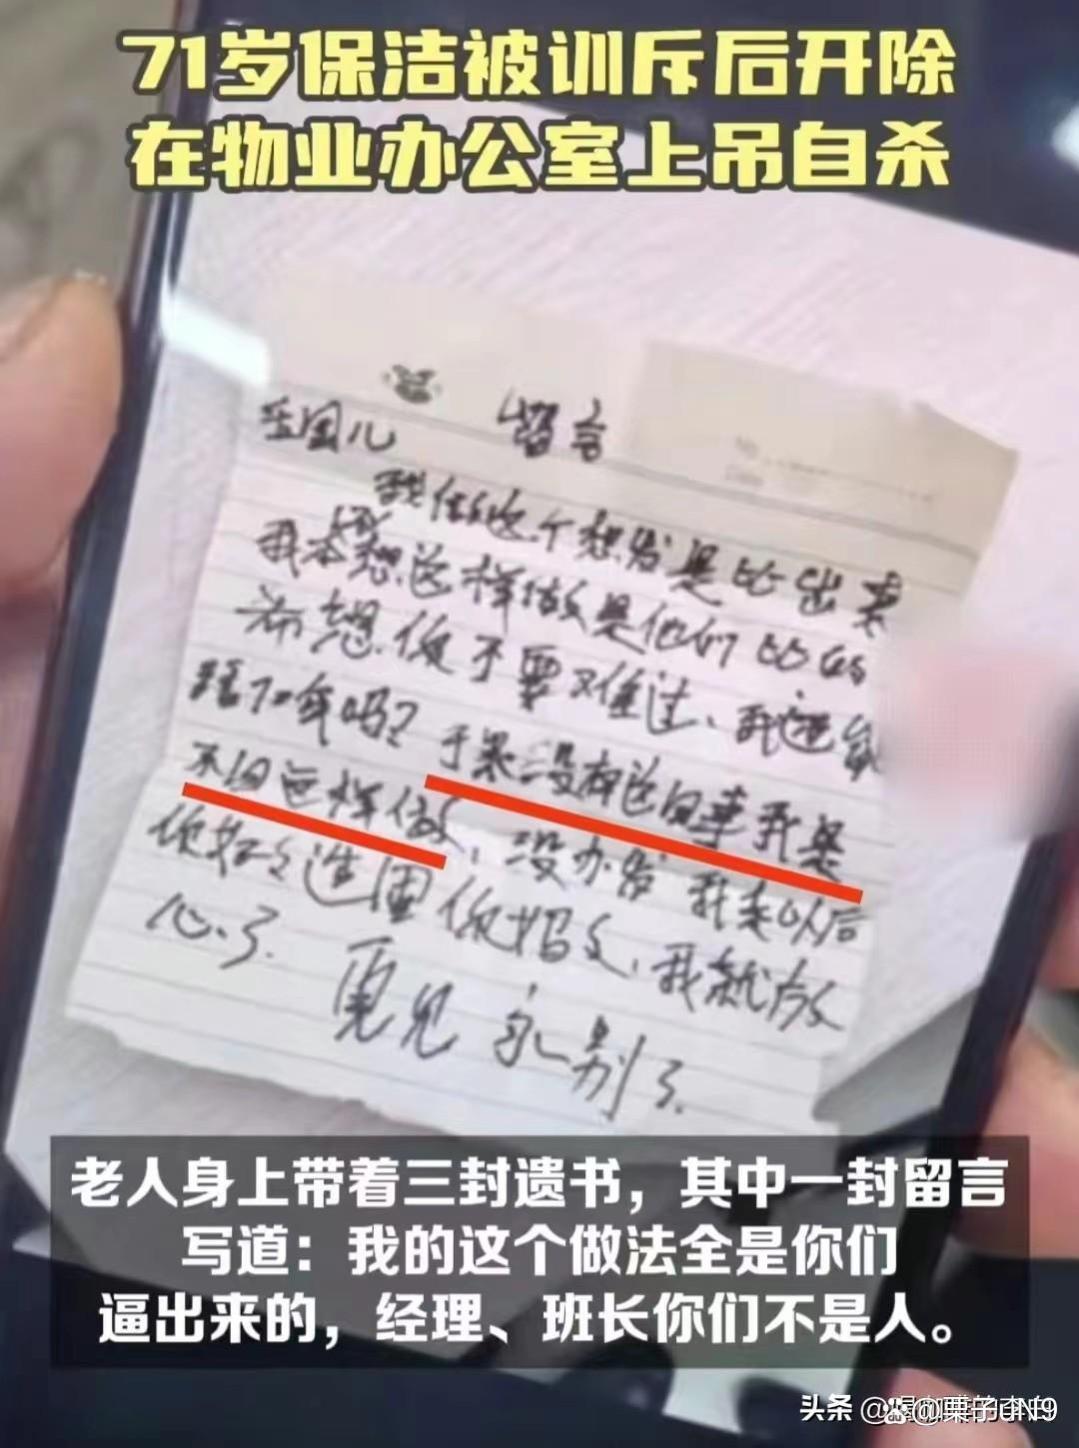 71岁保洁被训斥后开除
在物业办公室上吊自杀
留言
我做这个想发是比出来
我本想这样做是他们比的
希想你不要难过、我这
吗?
没有这回事我是
不回这样做、没办发 我走以后
你好好
你妈妈、我就放
心了.
再见 永别了.
老人身上带着三封遗书，其中一封留言
写道：我的这个做法全是你们
逼出来的，经理、班长你们不是人。
头条 @栗子JN9